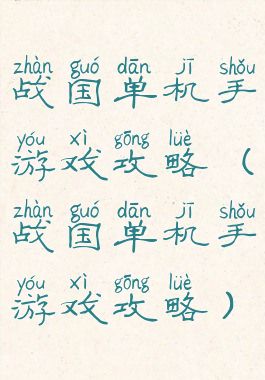 zhàn guó dān jī shǒu
战国单机手
yóu xì gōng lüè
游戏攻略（
zhàn guó dān jī shǒu
战国单机手
yóu xì gōng lüè
游戏攻略）